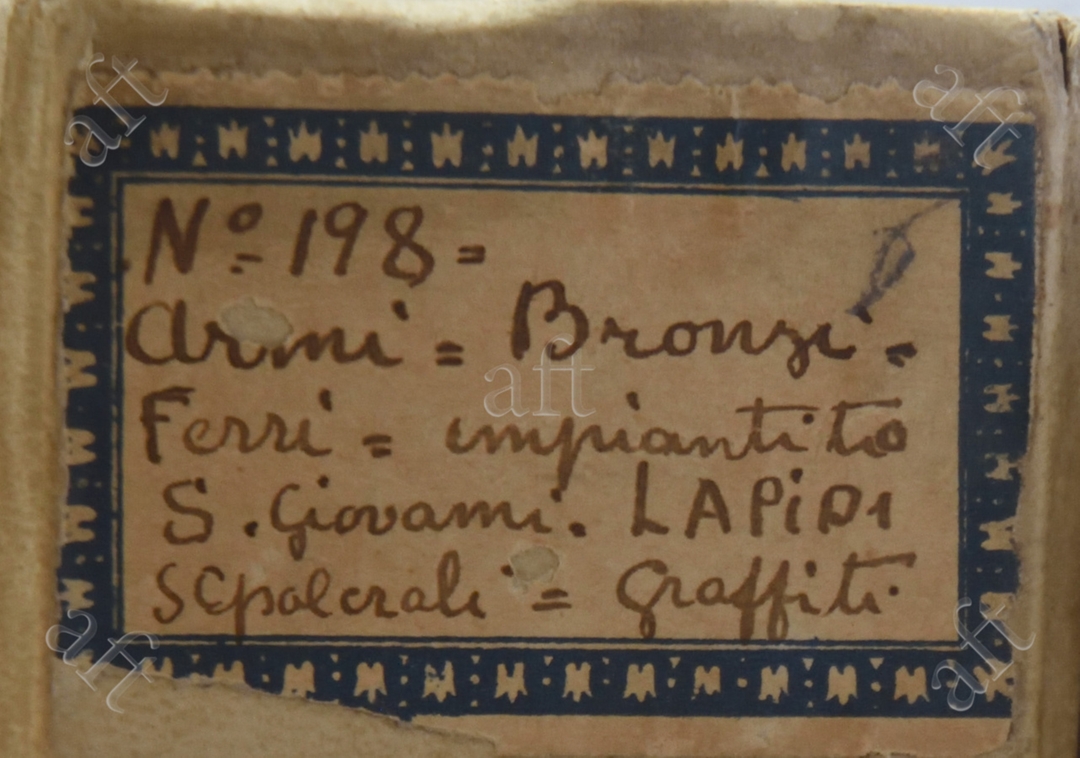 Nº 198 =
Armi = Bronzi =
Ferri = impiantito
S. Giovanni. LAPiDI
sepolcrali = graffiti.
aft
aft
aft
aft
aft